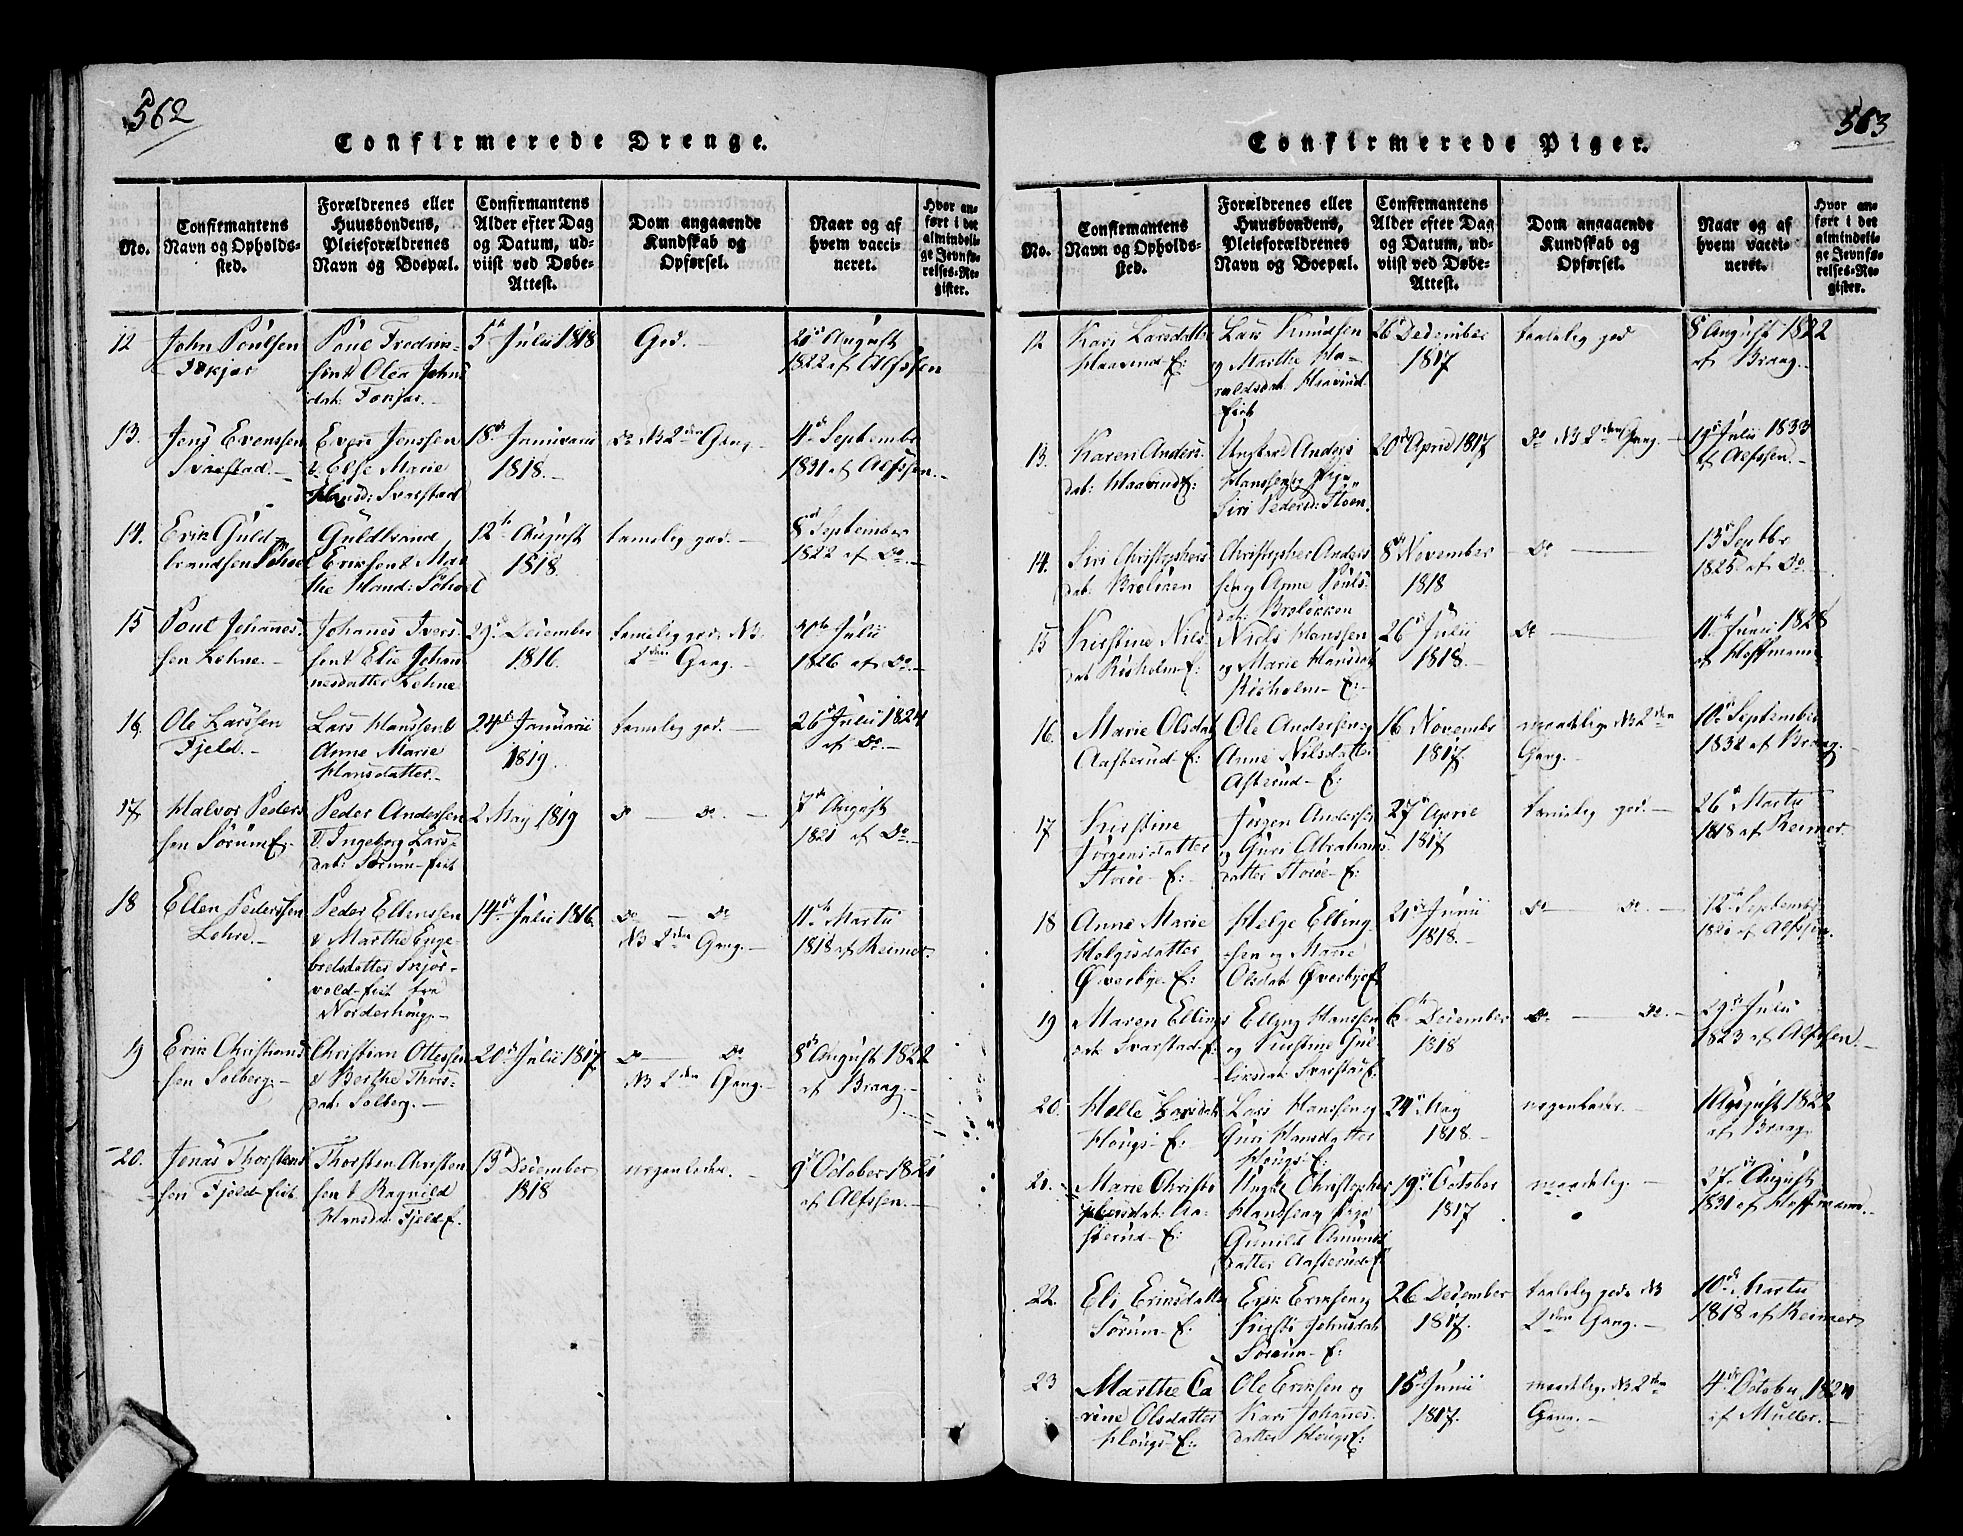 562
Confirmerede Drenge.
No.
Confirmantens
Navn og Opholds-
sted.
Forældrenes eller
Huusbondens,
Pleieforældrenes
Navn og Boepæl.
Confirmantens
Alder efter Dag
og Datum, ud-
viist ved Døbe-
Attest.
Dom angaaende
Kundskab og
Opførsel.
Naar og af
hvem vacci-
neret.
Hvor an-
ført i det
almindeli-
ge Jevnfø-
relses-Re-
gister.
12
John Poulsen
Poul
sen & Olea Johns
dat:
5te Julii 1818
God.
21de August
1822 af Alfssen
13.
Jens Evenssen
Svarstad.
Even Jenssen
& Else Marie
Hansd: Svarstad
18de Januarii
1818.
Do NB 2den Gang
11te September
1831 af Alfssen.
14.
Erik Guld-
brandsen Søhol
Guldbrand
Eriksen & Mar
the Hansd: Søhol
12te August
1818.
tamelig god.
8de September
1822 af Do.
15
Poul Johannes-
sen Lehne.
Johanes Ivers
sen & Elie Johan
nesdatter Lehne
29de December
1816.
tamelig god. NB.
2den Gang.
20de Julii
1826 af Do.
16.
Ole Larssen
Fjeld.
Lars Hanssen &
Anne Marie
Hansdatter.
24de Januarii
1819.
tamelig god.
26de Julii 1824
af Do.
17
Halvor Peders
sen Sørum E.
Peder Anderssen
& Ingeborg Lars-
dat: Sørum-eiet
2 May 1819
Do Do.
7de August
1821 af Do.
18
Ellen Pederssen
Lehne.
Peder Ellenssen
& Marthe Enge
bredsdatter Skjør-
vold-eiet fra
Norderhoug.
14de Julii 1816.
Do Do
NB 2den Gang.
11te Martii
1818 af Reimer.
19
Erik Christians
sen Solberg.
Christian Ottessen
& Berthe Thors-
dat: Solberg.
20de Julii 1817
Do Do
NB 2den Gang.
8de August 1822
af Braag.
20.
Jonas Thorstens
sen Fjeld-eiet
Thorsten Christen
sen & Ragnild
Hansdat: Fjeld E.
13de December
1818
nogenledes.
9de October 1821
af Alfssen.
563
Confirmerede Piger.
No.
Confirmantens
Navn og Opholds-
sted.
Forældrenes eller
Huusbondens,
Pleieforældrenes
Navn og Boepæl.
Confirmantens
Alder efter Dag
og Datum, ud-
viist ved Døbe-
Attest.
Dom angaaende
Kundskab og
Opførsel.
Naar og af
hvem vacci-
neret.
Hvor an-
ført i det
almindeli-
ge Jevnfø-
relses-Re-
gister.
12
Kari Larsdatter
Haavind E:
Lars Knudsen
og Marthe Ha-
raldsdat: Haavind
Eiet
26 December
1817
taalelig god
8de August 1822
af Braag.
13.
Karen Anders
dat: Haavind E:
Ungkarl Anders
Hanssen og Pige
Siri Pedersd: Støen
20de April 1817
Do NB 2den Gang.
19de Julii 1833
af Alfssen.
14.
Siri Christophers
dat: Braløken
Christopher Anders
sen og Anne Pouls
dat: Braløkken
8de November
1818
Do
13de Septbr
1825 af Do.
15
Kirstine Nils
dat: Risholm E:
Niels Hanssen
og Marie Hansdat:
Risholm E:
26de Julii
1818.
Do
11te Junii 1828
af Hoffmann
16.
Marie Olsdat:
Aasterud E:
Ole Anderssen og
Anne Nilsdatter
Asterud E:
16 November
1817.
maadelig. NB 2den
Gang.
10de September
1832 af Braag.
17
Kirstine
Jørgensdatter
Storøe E:
Jørgen Anderssen
og Guri Abrahams
datter Storøe E:
27de April
1817
tamelig god.
26de Martii
1818 af Reimer.
18
Anne Marie
Helgesdatter
Øverbye E:
Helge Elling
sen og Marie
Olsdat: Øverbye E.
21de Junii
1818.
Do Do.
12te September
af Alfssen.
19
Maren Ellings
dat: Svarstad E:
Elling Hanssen
og
Svarstad E.
6te December
1818
Do Do.
29de Julii
1823 af Alfssen.
20.
Helle Larsdat:
Hougs E:
Lars Hanssen og
Guri Hansdatter
Hougs E:
24de May
1818.
nogenledes.
1 August 1822
af Braag
21.
Marie Christo
phersdat: Aa-
sterud E:
Ungk: Christopher
Hanssen og Pige
Gunild Amunds
datter Aasterud E
19de October
1817
maadelig.
27de August
1831 af Hoffmann.
22.
Eli Eriksdatter
Sørum E:
Erik Eriksen og
Kirsti Johnsdat:
Sørum E:
26 December
1817.
taalelig god. NB
2den Gang.
10de Martii
1818 af Reimer
23
Marthe Ca
rine Olsdatter
Hougs E:
Ole Eriksen og
Kari Johannes
datter Hougs E:
15de Junii
1817.
maadelig. NB 2den
Gang.
4de October 1824
af Müller.